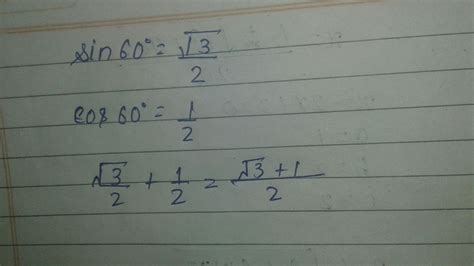 sin60° = √3/2
cos60° = 1/2
√3/2 + 1/2 = √3+1/2